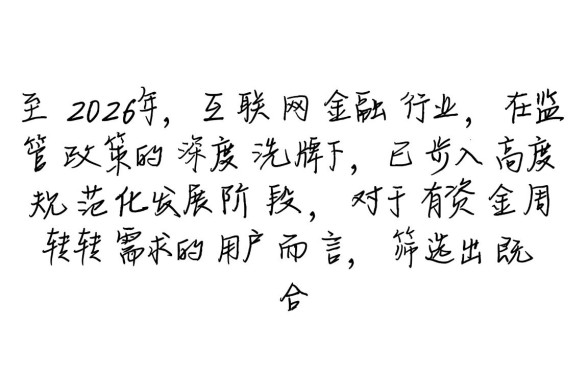 至 2026年，互联网金融行业，在监
管政策的深度洗牌下，已步入高度
规范化发展阶段，对于有资金周
转转需求的用户而言，筛选出既
合